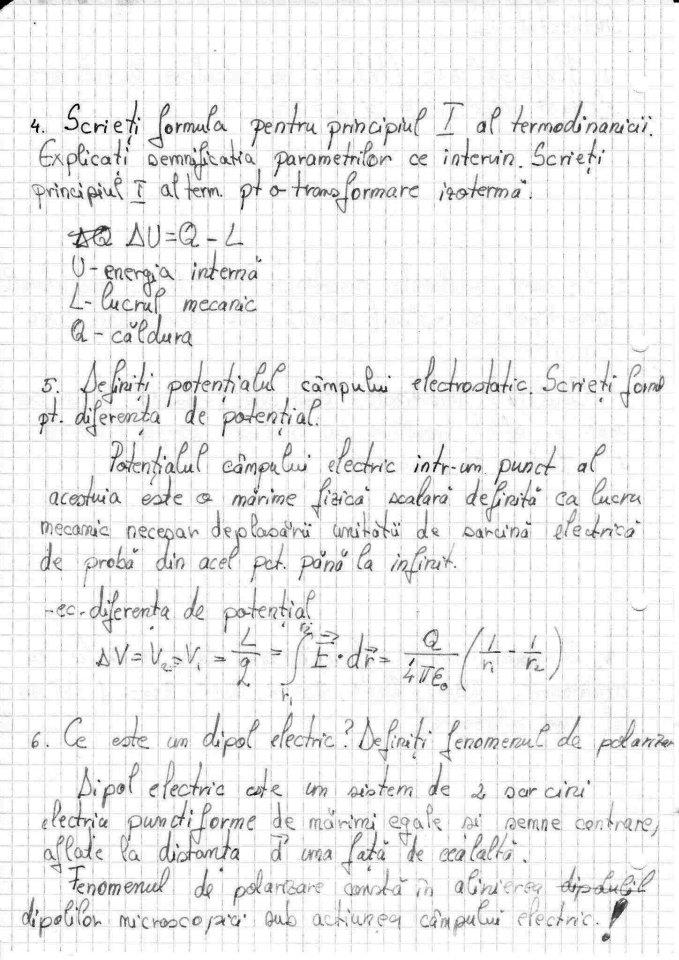 4. Scrieți formula pentru principiul I al termodinanicii.
Explicați semnificatia parametrilor ce intervin. Scrieți
principiul I al term. pt o transformare izotermă.
ΔQ ΔU = Q - L
U - energia internă
L - lucrul mecanic
Q - căldura
5. Definiți potențialul câmpului electrostatic. Scrieți form
pt. diferența de potențial.
Potențialul câmpului electric intr-un punct al
acestuia este o mărime fizică scalară definită ca lucru
mecanic necesar deplasării unității de sarcină electrică
de probă din acel pct. până la infinit.
- ec. diferenta de potențial
ΔV = V₂ - V₁ = L/q = ∫_{r₁}^{r₂} E⃗ · dr⃗ = Q/4πε₀ (1/r₁ - 1/r₂)
6. Ce este un dipol electric? Definiți fenomenul de polarizar
Dipol electric este un sistem de 2 sarcini
electrice punctiforme de mărimi egale si semne contrare,
aflate la distanta d⃗ una față de cealaltă.
Fenomenul de polarizare constă în alinierea dipolulil
dipolilor microscopici sub actiunea câmpului electric. !